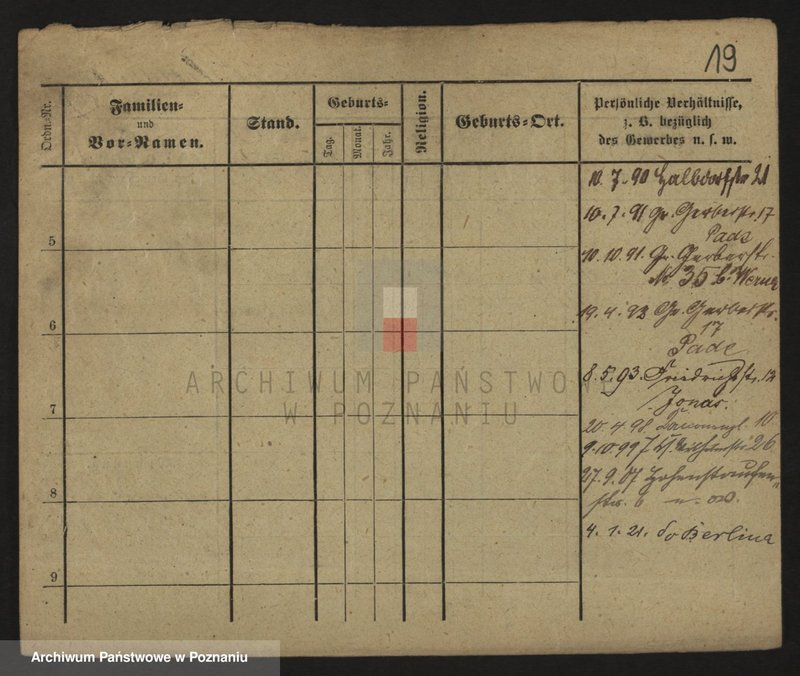 19
Ordn.-Nr.
Familien-
und
Vor-Namen.
Stand.
Geburts-
Tag.
Monat.
Jahr.
Religion.
Geburts-Ort.
Persönliche Verhältnisse,
z. B. bezüglich
des Gewerbes u. s. w.
10. 7. 90 Halbdorfstr 21
10. 7. 91 Gr. Gerberstr. 17
Pade
10. 10. 91. Gr. Gerberstr.
No 35 b. Werner
19. 4. 92 Gr. Gerberstr.
17
Pade
8. 5. 93. Friedrichstr. 12
Jonas.
20. 4 98. 10
9. 10. 99 26
27. 9. 07 Hohenstaufen-
str. 6
4. 1. 21. do Berlina
5
6
7
8
9
ARCHIWUM PAŃSTWOWE
W POZNANIU
Archiwum Państwowe w Poznaniu